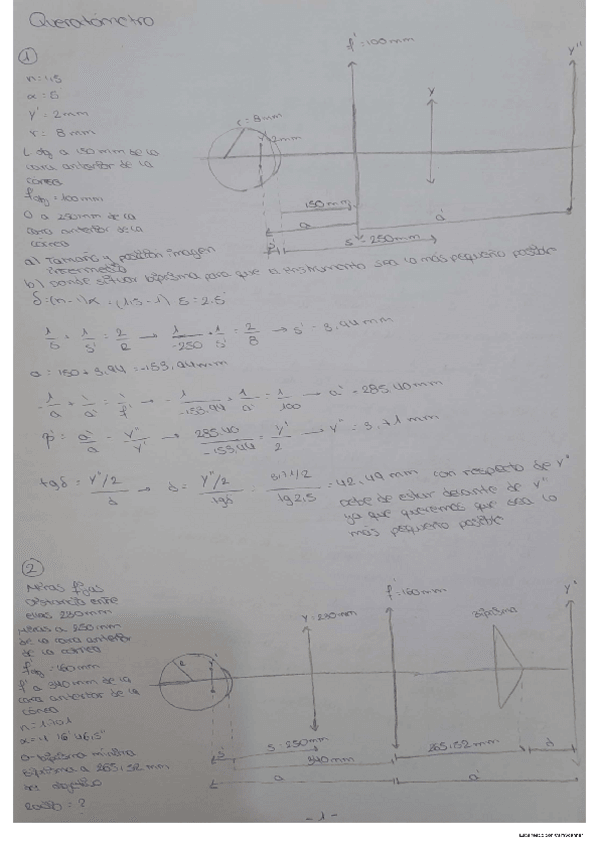 Queratómetro
1
n=1,5
α = 5
y' = 2mm
r = 8mm
L obj a 150 mm de la
cara anterior de la
córnea
f'obj = 100mm
O a 250mm de la
cara anterior de la
córnea
f' = 100mm
y
y''
r = 8mm
2mm
150mm
a
a'
s = 250mm
a) Tamaño y posición imagen
intermedia
b) Donde situar biprisma para que el instrumento sea lo más pequeño posible
δ = (n-1)α = (1,5-1) · 5 = 2,5
1/s + 1/s' = 2/R → 1/-250 + 1/s' = 2/8 → s' = 3,94mm
a = 150 + 3,94 = -153,94mm
-1/a + 1/a' = 1/f' → -1/-153,94 + 1/a' = 1/100 → a' = 285,40mm
β' = a'/a = y''/y' → 285,40/-153,94 = y''/2 → y'' = 3,71mm
tgδ = y''/2 / d → d = y''/2 / tgδ = 3,71/2 / tg2,5 = 42,49 mm con respecto de y''
debe de estar delante de y''
ya que queremos que sea lo
más pequeño posible
2
Miras fijas
Distancia entre
ellas 230mm
Miras a 250mm
de la cara anterior
de la córnea
f'obj = 160mm
f' a 340mm de la
cara anterior de la
córnea
n = 1,701
α = 1 16' 46,5"
biprisma mínima
Biprisma a 265,52 mm
del objetivo
Radio = ?
y = 230mm
f' = 160mm
biprisma
y'
R
s'
s = 250mm
340mm
265,52mm
d
a
a'
- 1 -